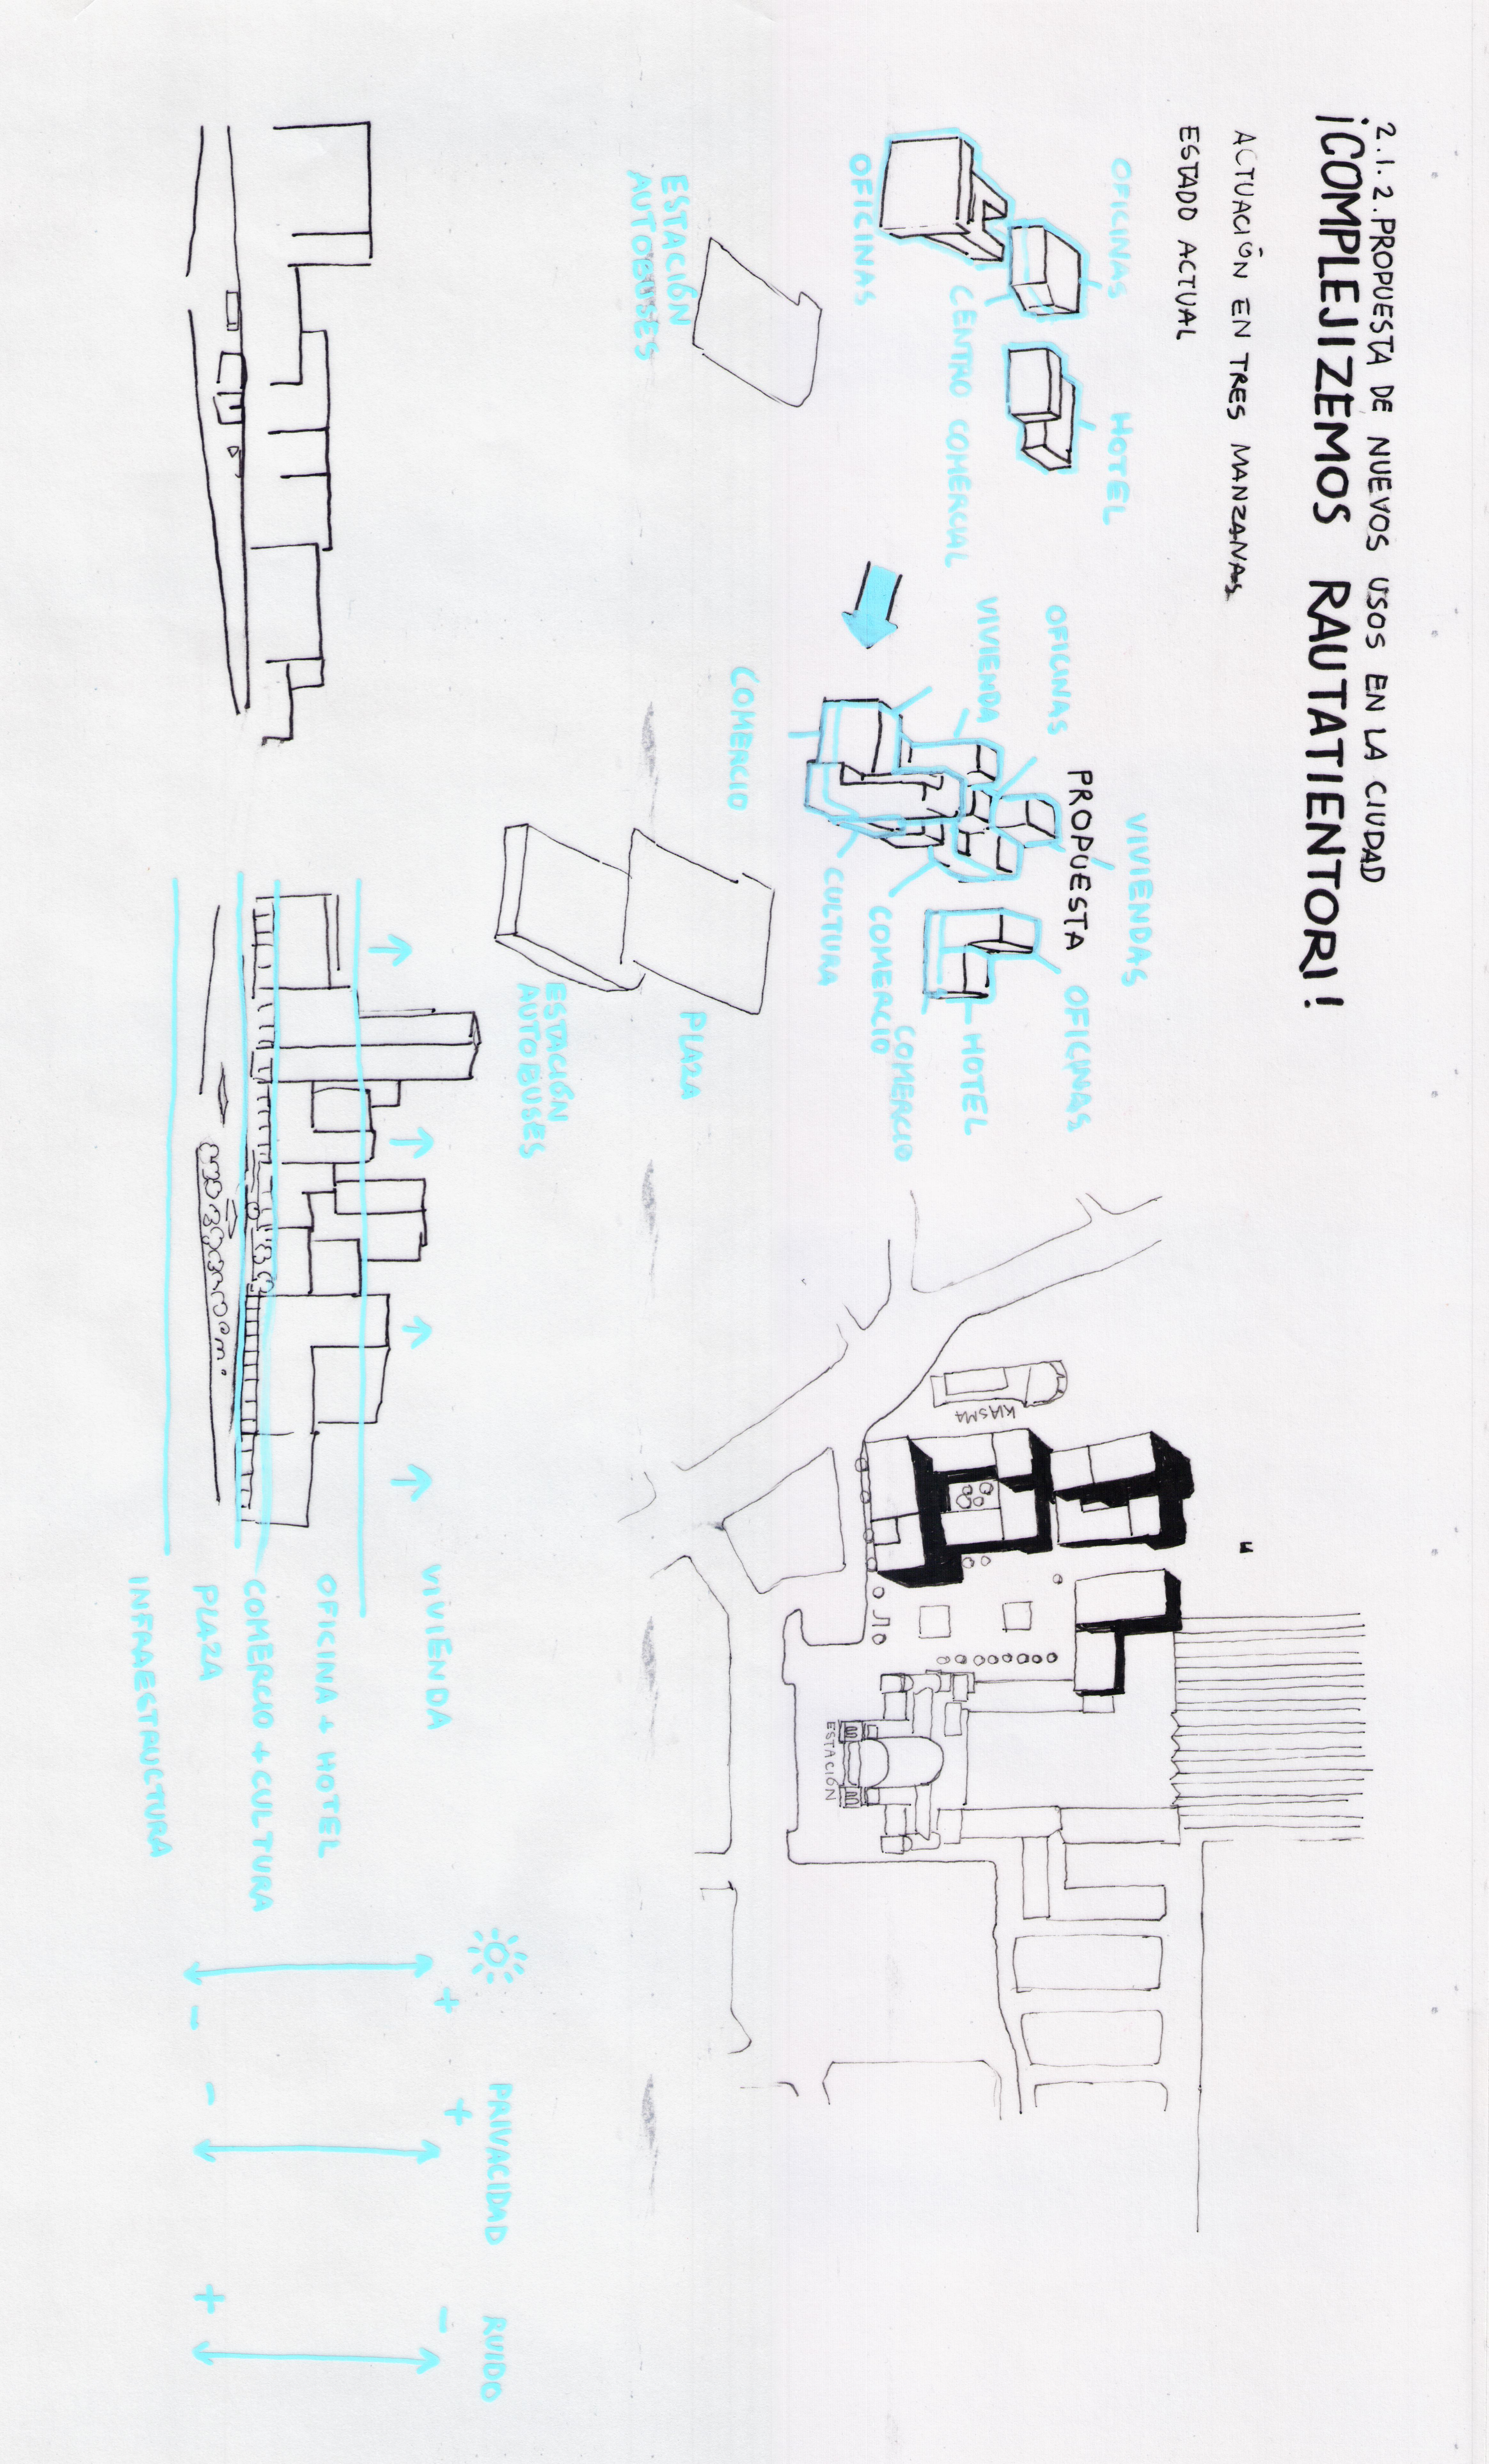 2.1.2. PROPUESTA DE NUEVOS USOS EN LA CIUDAD
¡COMPLEJIZEMOS RAUTATIENTORI!
ACTUACIÓN EN TRES MANZANAS
ESTADO ACTUAL
OFICINAS
HOTEL
CENTRO COMERCIAL
OFICINAS
ESTACIÓN
AUTOBUSES
PROPUESTA
VIVIENDAS
OFICINAS
OFICINAS
VIVIENDA
HOTEL
COMERCIO
COMERCIO
CULTURA
COMERCIO
PLAZA
ESTACIÓN
AUTOBUSES
KIASMA
ESTACIÓN
VIVIENDA
OFICINA + HOTEL
COMERCIO + CULTURA
PLAZA
INFRAESTRUCTURA
+
-
PRIVACIDAD
+
-
RUIDO
-
+